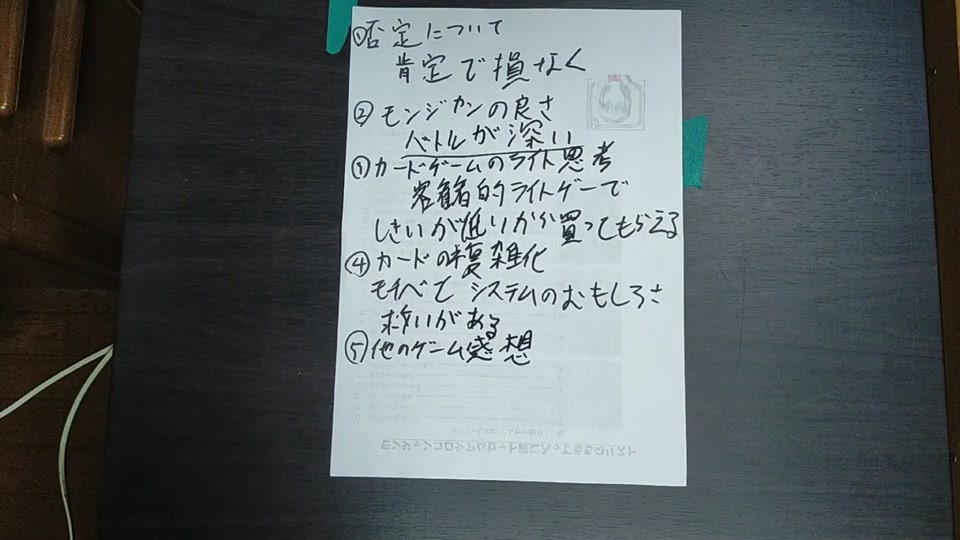 ①否定について
肯定で損なく
②モンジカンの良さ
バトルが深い
③カードゲームのライト思考
客観的ライトゲーで
しきいが低いから買ってもらえる
④カードの複雑化
モチベと システムのおもしろさ
救いがある
⑤他のゲーム感想